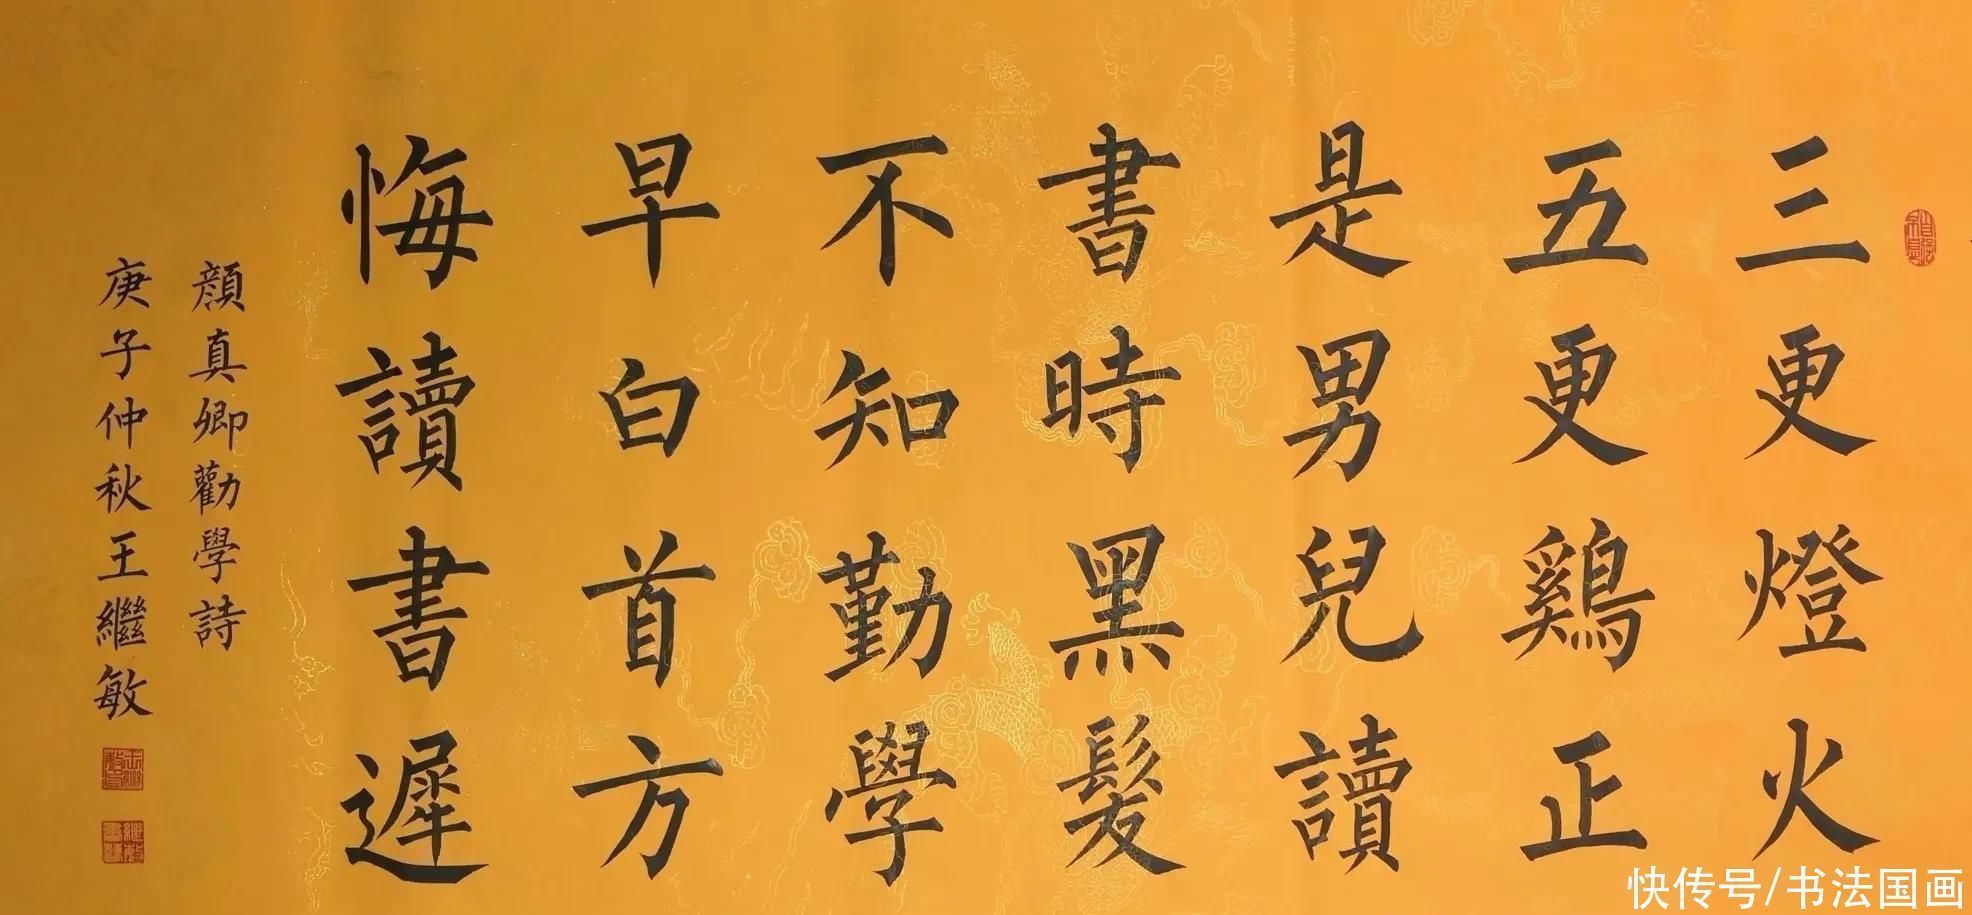 三更燈火
五更鷄正
是男兒讀
書時黑髮
不知勤學
早白首方
悔讀書遲
顔真卿勸學詩
庚子仲秋王繼敏
快传号/书法国画